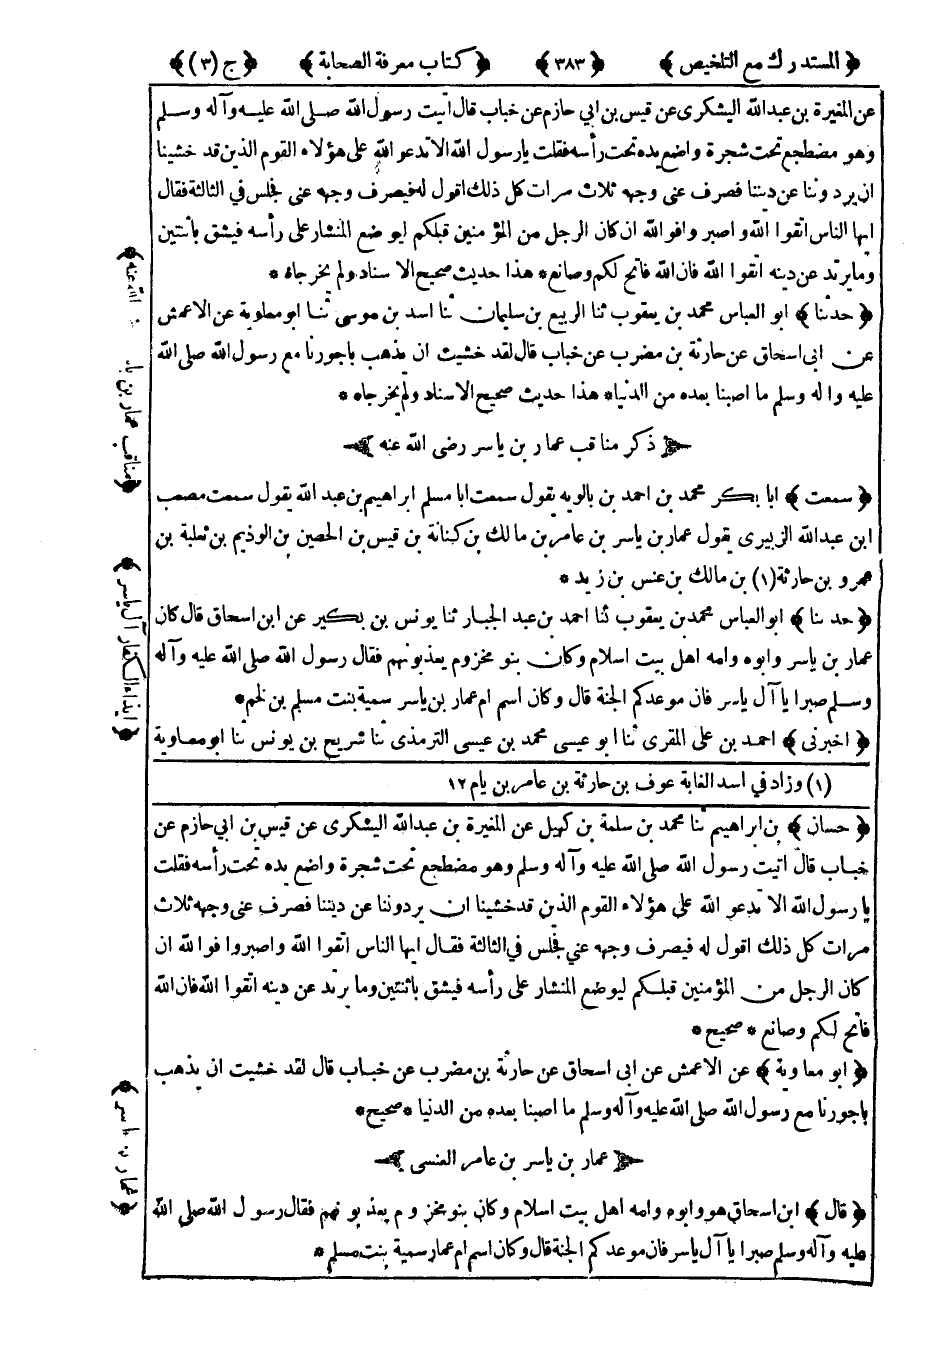 ﴿ المستدرك مع التلخيص ﴾ ﴿ ٣٨٣ ﴾ ﴿ كتاب معرفة الصحابة ﴾ ﴿ ج (٣) ﴾
عن المغيرة بن عبدالله اليشكرى عن قيس بن ابي حازم عن خباب قال اتيت رسول الله صلى الله عليه وآله وسلم
وهو مضطجع تحت شجرة واضع يده تحت رأسه فقلت يارسول الله الا تدعو الله على هؤلاء القوم الذين قد خشينا
ان يردوننا عن ديننا فصرف عنى وجهه ثلاث مرات كل ذلك اقول له فيصرف وجهه عنى فجلس في الثالثة فقال
ايها الناس اتقوا الله واصبروا فوالله ان كان الرجل من المؤمنين قبلكم ليوضع المنشار على رأسه فيشق باثنتين
وما يرتد عن دينه اتقوا الله فان الله فاتح لكم وصانع * هذا حديث صحيح الاسناد ولم يخرجاه *
﴿ حدثنا ﴾ ابو العباس محمد بن يعقوب ثنا الربيع بن سليمان ثنا اسد بن موسى ثنا ابو معاوية عن الاعمش
عن ابى اسحاق عن حارثة بن مضرب عن خباب قال لقد خشيت ان يذهب باجورنا مع رسول الله صلى الله
عليه واله وسلم ما اصبنا بعده من الدنيا * هذا حديث صحيح الاسناد ولم يخرجاه *
ذكر مناقب عمار بن ياسر رضى الله عنه
﴿ سمعت ﴾ ابا بكر محمد بن احمد بن بالويه يقول سمعت ابا مسلم ابراهيم بن عبد الله يقول سمعت مصعب
ابن عبدالله الزبيرى يقول عمار بن ياسر بن عامر بن مالك بن كنانة بن قيس بن الحصين بن الوذيم بن ثعلبة بن
عمرو بن حارثة (١) بن مالك بن عنس بن زيد *
﴿ حدثنا ﴾ ابو العباس محمد بن يعقوب ثنا احمد بن عبد الجبار ثنا يونس بن بكير عن ابن اسحاق قال كان
عمار بن ياسر وابوه وامه اهل بيت اسلام وكان بنو مخزوم يعذبونهم فقال رسول الله صلى الله عليه وآله
وسلم صبرا يا آل ياسر فان موعدكم الجنة قال وكان اسم ام عمار بن ياسر سمية بنت مسلم بن لخم *
﴿ اخبرنى ﴾ احمد بن على المقرى ثنا ابو عيسى محمد بن عيسى الترمذى ثنا شريح بن يونس ثنا ابو معاوية
(١) وزاد في اسد الغابة عوف بن حارثة بن عامر بن يام ١٢
﴿ حسان ﴾ بن ابراهيم ثنا محمد بن سلمة بن كهيل عن المغيرة بن عبدالله اليشكرى عن قيس بن ابي حازم عن
خباب قال اتيت رسول الله صلى الله عليه وآله وسلم وهو مضطجع تحت شجرة واضع يده تحت رأسه فقلت
يا رسول الله الا تدعو الله على هؤلاء القوم الذين قد خشينا ان يردوننا عن ديننا فصرف عنى وجهه ثلاث
مرات كل ذلك اقول له فيصرف وجهه عني فجلس في الثالثة فقال ايها الناس اتقوا الله واصبروا فوالله ان
كان الرجل من المؤمنين قبلكم ليوضع المنشار على رأسه فيشق باثنتين وما يرتد عن دينه اتقوا الله فان الله
فاتح لكم وصانع * صحيح *
﴿ ابو معاوية ﴾ عن الاعمش عن ابى اسحاق عن حارثة بن مضرب عن خباب قال لقد خشيت ان يذهب
باجورنا مع رسول الله صلى الله عليه وآله وسلم ما اصبنا بعده من الدنيا * صحيح *
عمار بن ياسر بن عامر العنسى
﴿ قال ﴾ ابن اسحاق هو وابوه وامه اهل بيت اسلام وكان بنو مخزوم يعذبونهم فقال رسول الله صلى الله
عليه وآله وسلم صبرا يا آل ياسر فان موعدكم الجنة قال وكان اسم ام عمار سمية بنت مسلم *
﴿ مناقب عمار بن الله عنه ﴾
﴿ ايذاء الكفار آل ياسر ﴾
﴿ عمار بن ياسر ﴾